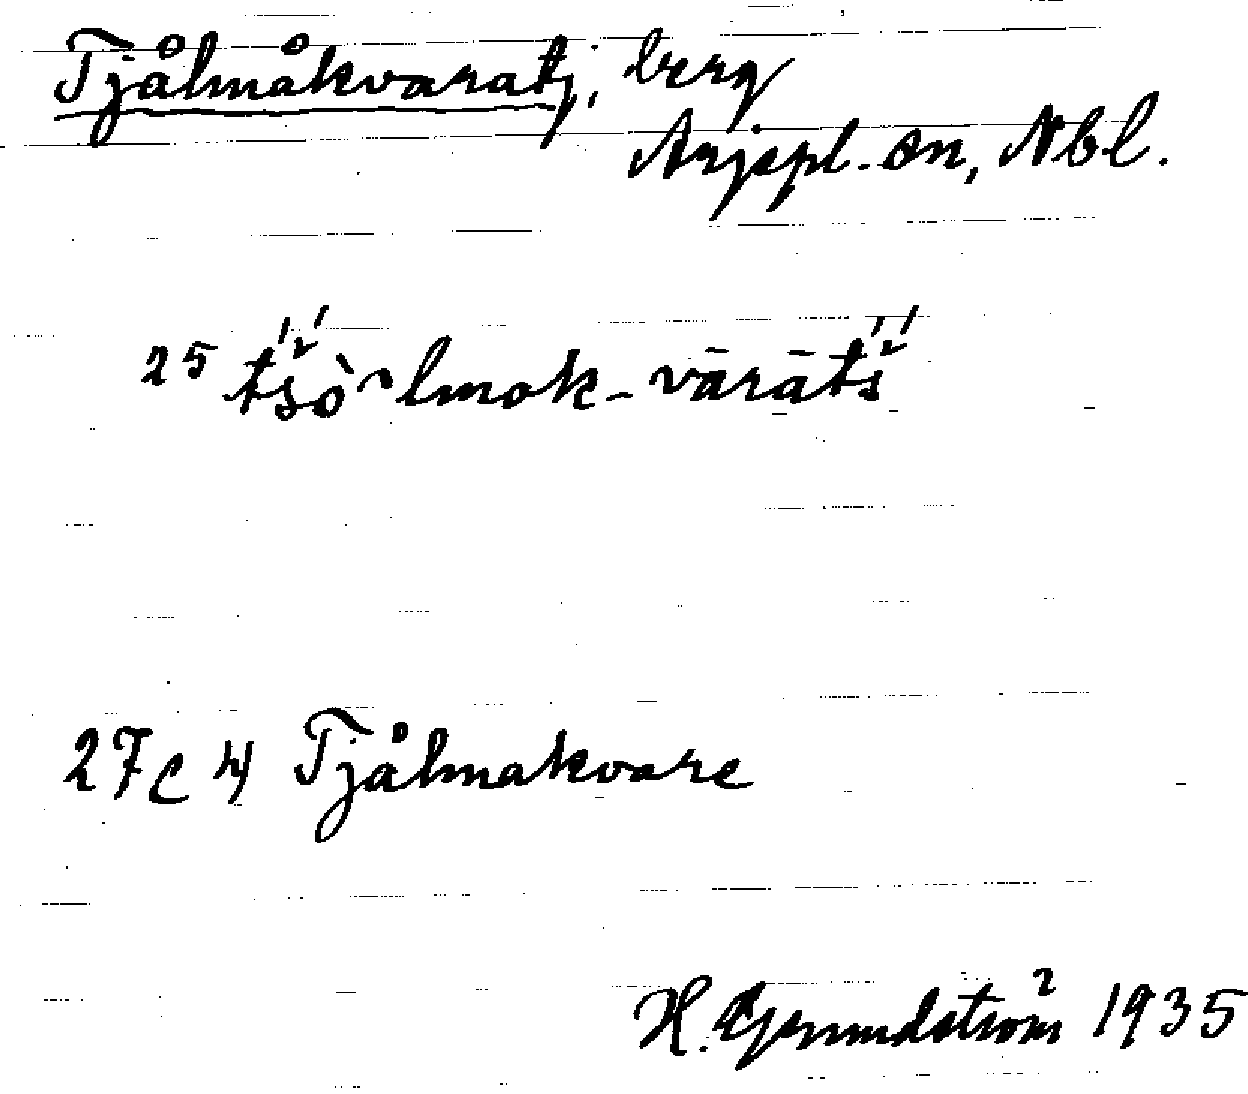 Tjålmåkvaratj, berg
Arjepl. sn, Nbl.
25 tśò̀lmok-vārātś
27c 4 Tjålmakvare
H. Grundström 1935